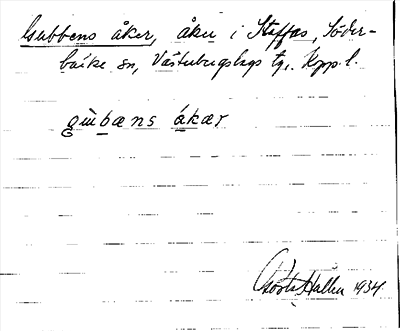 Gubbens åker, åker i Staffas, Söder-
barke sn, Västerbergslags tg. Kpp. l.
gùbæns ákær
Gösta Hallén 1934.